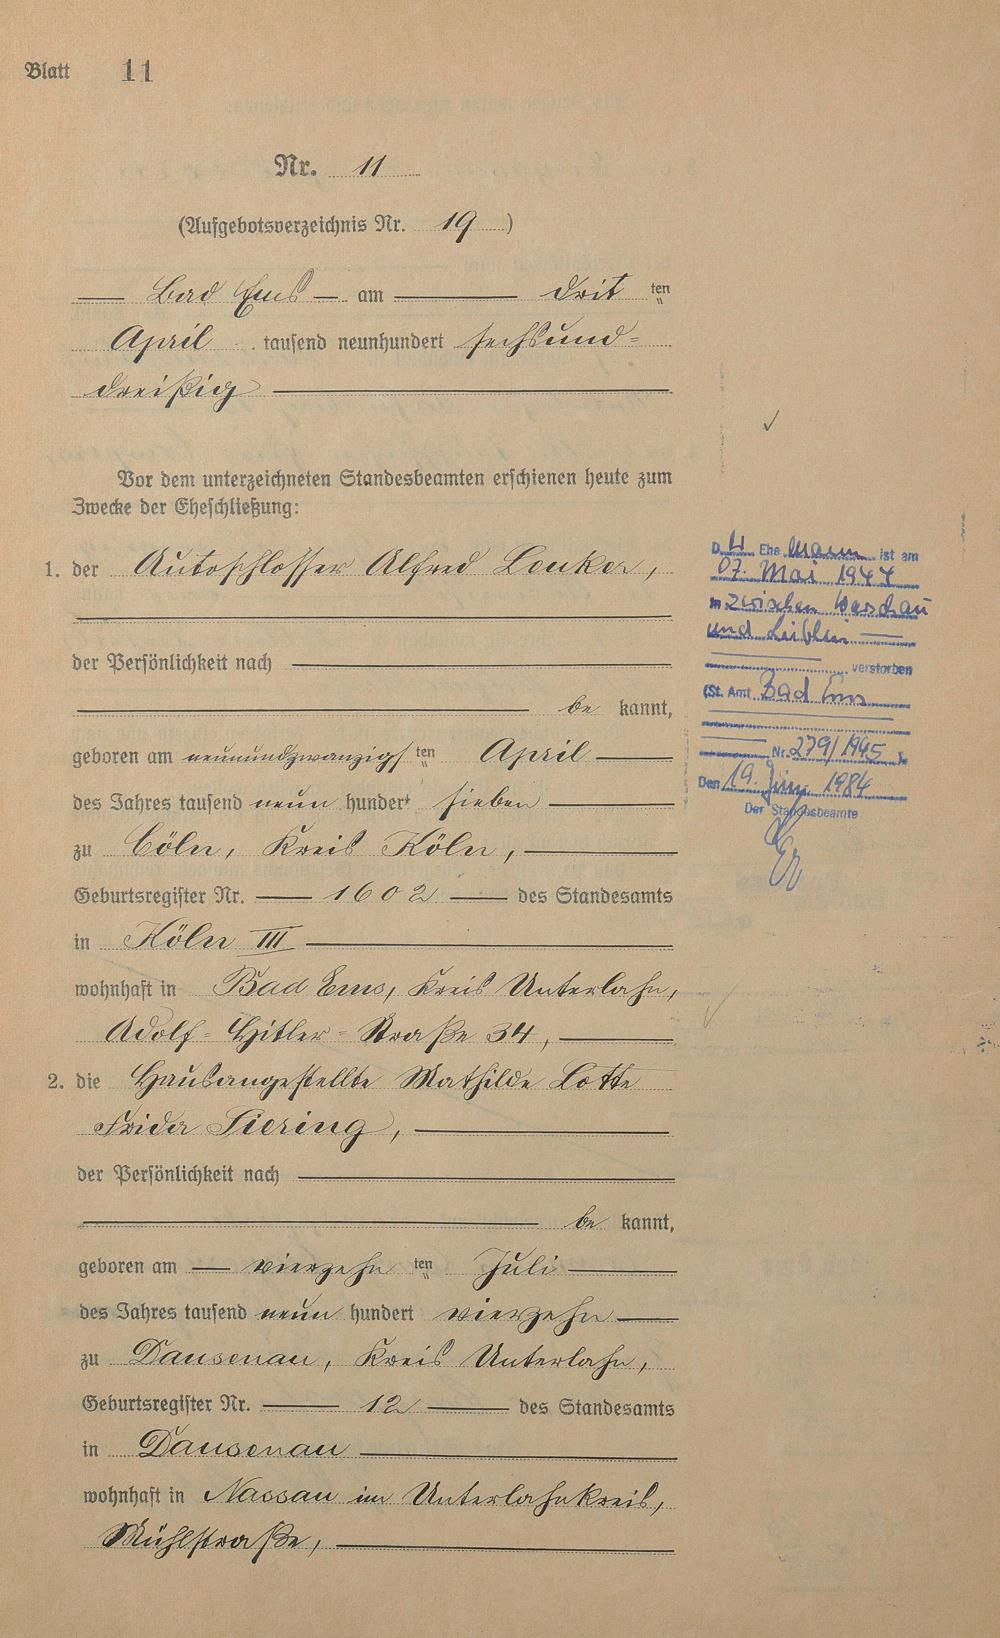 Blatt 11
Nr. 11
(Aufgebotsverzeichnis Nr. 19 )
Bad Ems am drit ten
April tausend neunhundert sechsund=
dreißig
Vor dem unterzeichneten Standesbeamten erschienen heute zum
Zwecke der Eheschließung:
1. der Autoschlosser Alfred
der Persönlichkeit nach
be kannt,
geboren am neunundzwanzigs ten April
des Jahres tausend neun hundert sieben
zu Cöln, Kreis Köln,
Geburtsregister Nr. 1602 des Standesamts
in Köln III
wohnhaft in Bad Ems, Kreis Unterlahn,
Adolf-Hitler-Straße 34,
2. die Hausangestellte Mathilde Lotte
Frida Siering,
der Persönlichkeit nach
be kannt,
geboren am vierzehn ten Juli
des Jahres tausend neun hundert vierzehn
zu Dausenau, Kreis Unterlahn,
Geburtsregister Nr. 12 des Standesamts
in Dausenau
wohnhaft in Nassau im Unterlahnkreis,
Mühlstraße,
D er Ehe Mann ist am
07. Mai 1944
in zwischen Warschau
und Lublin
verstorben
(St. Amt Bad Ems
Nr. 279/1945 )
Den 19. 1984
Der Standesbeamte